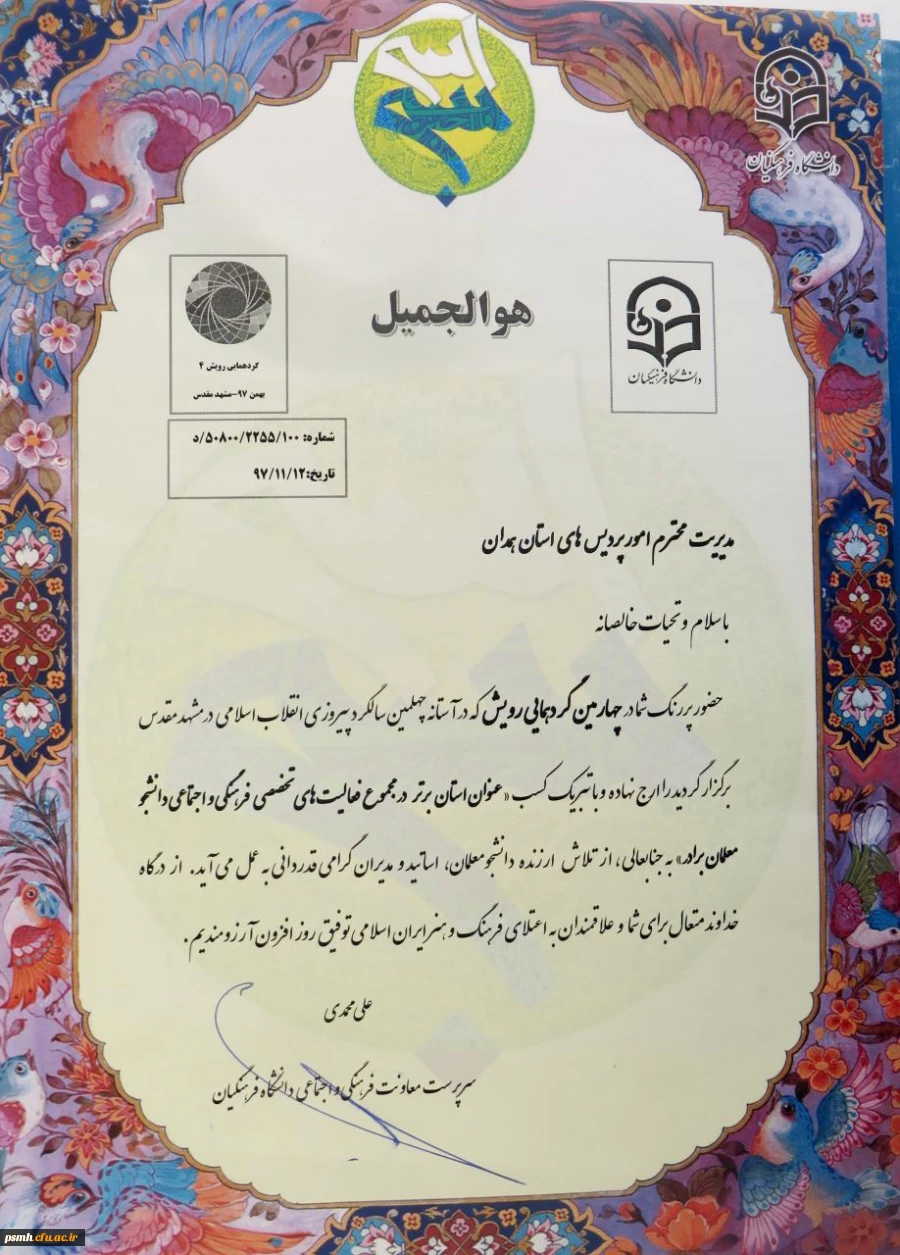 دانشگاه فرهنگیان
هوالجمیل
دانشگاه فرهنگیان
گردهمایی رویش ۴
بهمن ۹۷-مشهد مقدس
شماره: ۵۰۸۰۰/۲۲۵۵/۱۰۰/د
تاریخ:۹۷/۱۱/۱۲
مدیریت محترم امور پردیس های استان همدان
با سلام و تحیات خالصانه
حضور پررنگ شما در چهارمین گردهمایی رویش که در آستانه چهلمین سالگرد پیروزی انقلاب اسلامی در مشهد مقدس
برگزار گردید را ارج نهاده و با تبریک کسب «عنوان استان برتر در مجموع فعالیت های تخصصی فرهنگی و اجتماعی دانشجو
معلمان برادر» به جنابعالی، از تلاش ارزنده دانشجو معلمان، اساتید و مدیران گرامی قدردانی به عمل می آید. از درگاه
خداوند متعال برای شما و علاقمندان به اعتلای فرهنگ و هنر ایران اسلامی توفیق روز افزون آرزومندیم.
علی محمدی
سرپرست معاونت فرهنگی و اجتماعی دانشگاه فرهنگیان
psmh.cfu.ac.ir